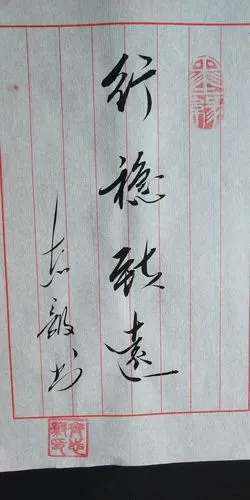 行稳致远
志敏书